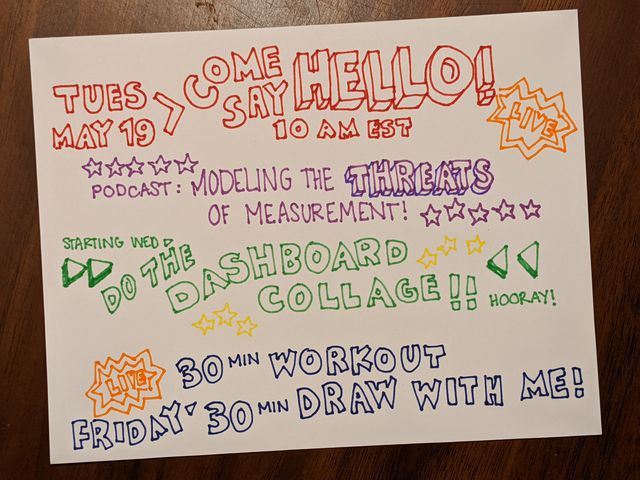 TUES MAY 19 > COME SAY HELLO!
10 AM EST
LIVE!
PODCAST: MODELING THE THREATS
OF MEASUREMENT!
STARTING WED
DO THE DASHBOARD
COLLAGE!!
HOORAY!
LIVE!
30 MIN WORKOUT
FRIDAY 30 MIN DRAW WITH ME!